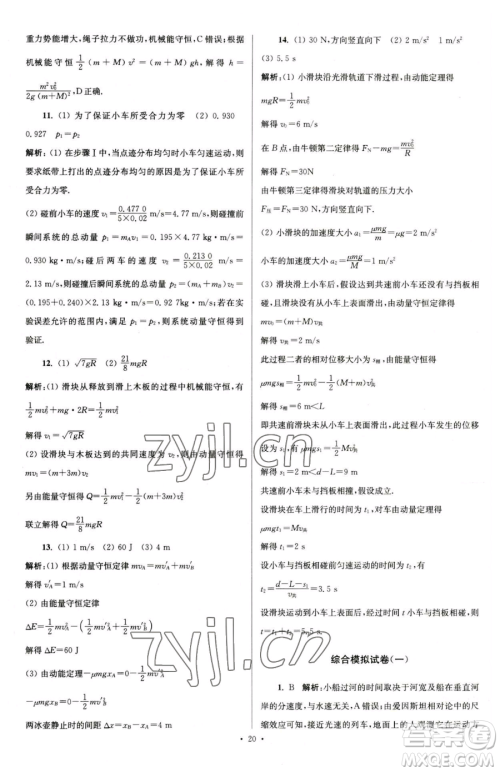 重力势能增大,绳子拉力不做功,机械能守恒,C错误;根据
机械能守恒 1/2 (m+M)v² = (m+M)gh,解得 h =
m²v₀²/2g(m+M)²,D正确.
11. (1) 为了保证小车所受合力为零 (2) 0.930
0.927 p₁=p₂
解析:(1) 在步骤Ⅰ中,当点迹分布均匀时小车匀速运动,则
要求纸带上打出的点迹分布均匀的原因是为了保证小车
所受合力为零.
(2) 碰前小车的速度 v₁ = 0.4770/5×0.02 m/s=4.77 m/s,则碰撞前
瞬间系统的总动量 p₁ = m_A v₁ = 0.195×4.77 kg·m/s =
0.930 kg·m/s;碰后两车的速度 v₂ = 0.2130/5×0.02 m/s =
2.13 m/s,则碰撞后瞬间系统的总动量 p₂ = (m_A+m_B)v₂ =
(0.195+0.240)×2.13 kg·m/s = 0.927 kg·m/s. 所以在实
验误差允许的范围内,满足 p₁=p₂,即碰撞前后动量守恒.
12. (1) √7gR (2) 21/8 mgR
解析:(1) 滑块从释放到滑上木板的过程中机械能守恒,则
有 1/2 mv₀² + mg·2R = 1/2 mv₁²
解得 v₁ = √7gR
(2) 设滑块与木板达到的共同速度为 v₂,由动量守恒定律得
mv₁ = (m+3m)v₂
另由能量守恒定律得 Q = 1/2 mv₁² − 1/2 (m+3m)v₂²
联立解得 Q = 21/8 mgR
13. (1) 1 m/s (2) 60 J (3) 4 m
解析:(1) 根据动量守恒定律 mv_A = mv′_A + mv′_B
解得 v′_A = 1 m/s
(2) 由能量守恒定律
ΔE = 1/2 mv_A² − 1/2 mv′_A² − 1/2 mv′_B²
解得 ΔE = 60 J
(3) 由动能定理 −μmgx_A = 0 − 1/2 mv′_A²
−μmgx_B = 0 − 1/2 mv′_B²
两冰壶静止时的间距 ΔX = x_B − x_A = 4 m
14. (1) 30 N,方向竖直向下 (2) 2 m/s² 1 m/s²
(3) 5.5 s
解析:(1) 小滑块沿光滑轨道下滑过程中,由动能定理得
mgR = 1/2 mv₀²
解得 v₀ = 6 m/s
在 B 点,由牛顿第二定律得 F_N − mg = mv₀²/R
解得 F_N = 30 N
由牛顿第三定律得滑块对轨道的压力大小
F′_N = F_N = 30 N
方向竖直向下.
(2) 小滑块的加速度大小 a₁ = μmg/m = μg = 2 m/s²
小车的加速度大小 a₂ = μmg/M = 1 m/s²
mv₀ = (M+m)v共
解得 v共 = 2 m/s
此过程二者的相对位移大小满足
μmgs相 = 1/2 mv₀² − 1/2 (M+m)v共²
解得 s相 = 6 m < L
即共速前滑块未与小车右壁相碰,此过程小车发生的位移
μmgs₂ = 1/2 Mv共²
解得 s₂ = 2 m < d − L = 9 m
共速前小车未与挡板相碰.
设滑块在车上滑行的时间为 t₁,对小车由动量定理得
μmgt₁ = Mv共
解得 t₁ = 2 s
设小车与挡板相碰前匀速运动的时间为 t₂,则有
t₂ = d−L−s₂/v共 = 3.5 s
设滑块运动到小车与挡板相碰时的时间 t,则有
t = t₁ + t₂ = 5.5 s
综合模拟试卷(一)
1. B 解析:小船过河的时间取决于河宽及船在垂直河
岸的速度,与水速大小无关,A错误;由爱因斯坦相对论的尺
缩效应可知,接近光速的列车上的人观察它在运动方
· 20 ·
zyjl.cn
zyjl.cn
作业精灵